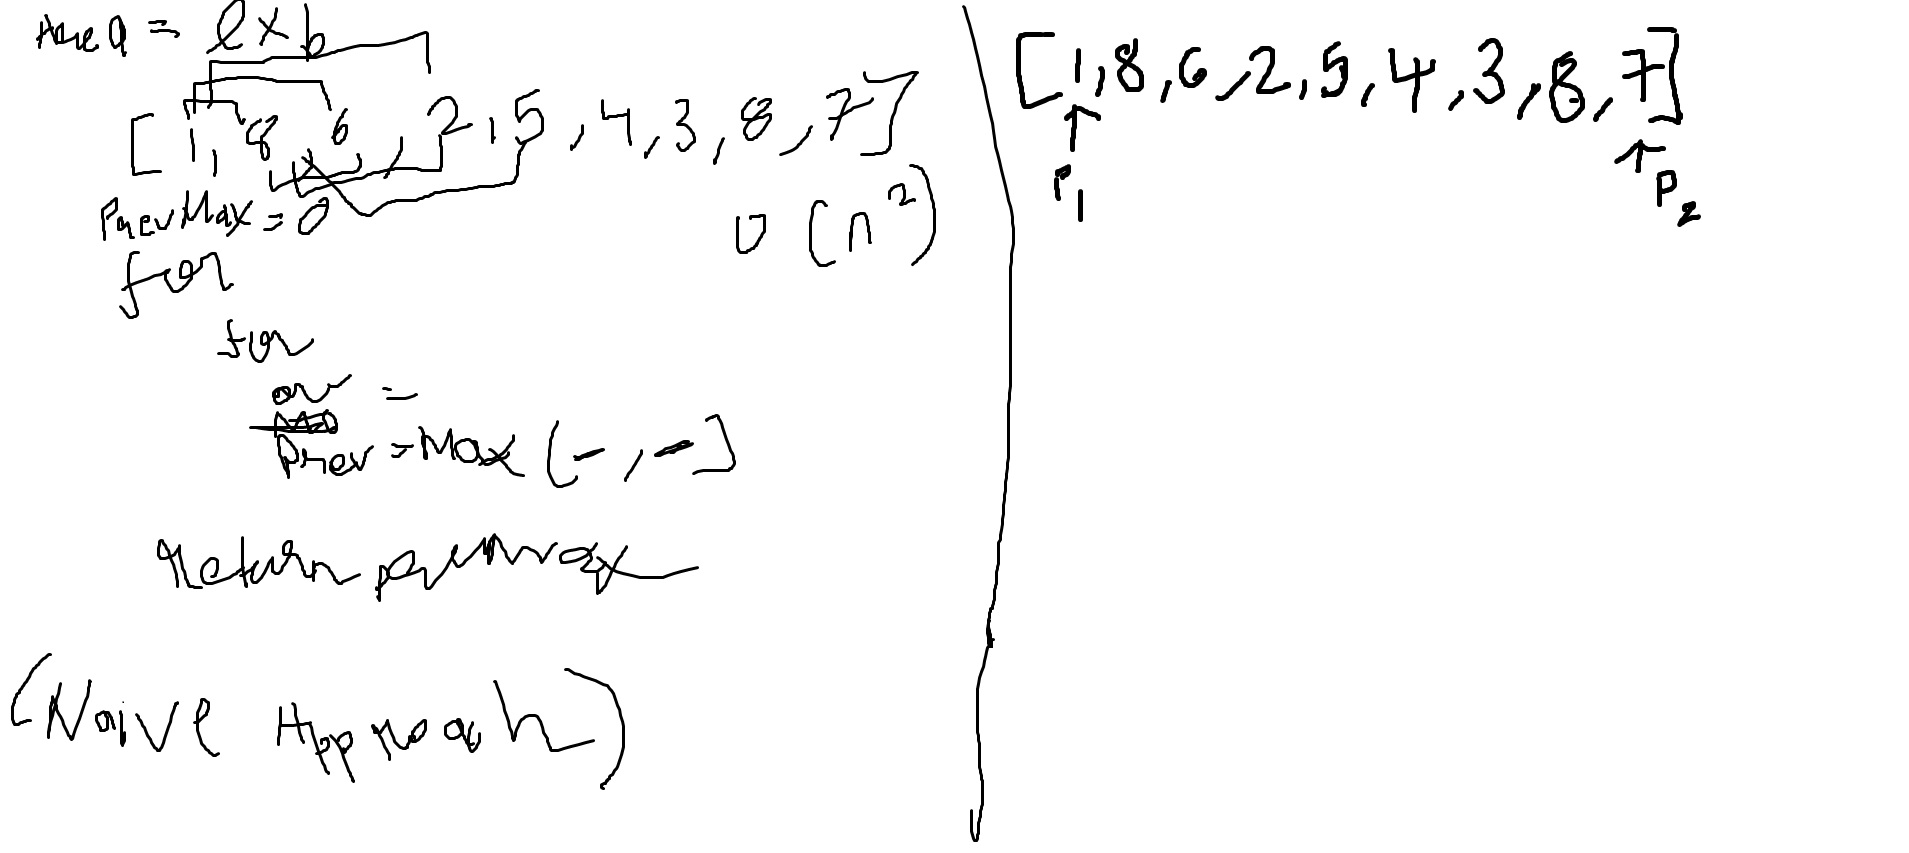 Area = l x b
[1, 8, 6, 2, 5, 4, 3, 8, 7]
PrevMax = 0
O (n²)
for
for
av =
Prev = Max (-, -)
Return prevmax
(Naive Approach)
[1, 8, 6, 2, 5, 4, 3, 8, 7]
P1
P2